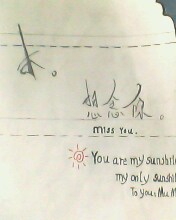 想念你。
miss you.
You are my sunshine
my only sunshi
To you: Mu M